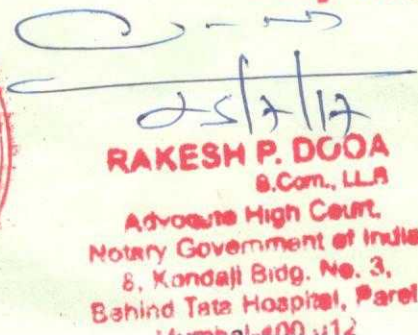 25/7/17
RAKESH P. DOOA
B.Com., LLB
Advocate High Court,
Notary Government of India
8, Kondaji Bldg. No. 3,
Behind Tata Hospital, Parel
Mumbai-400 012